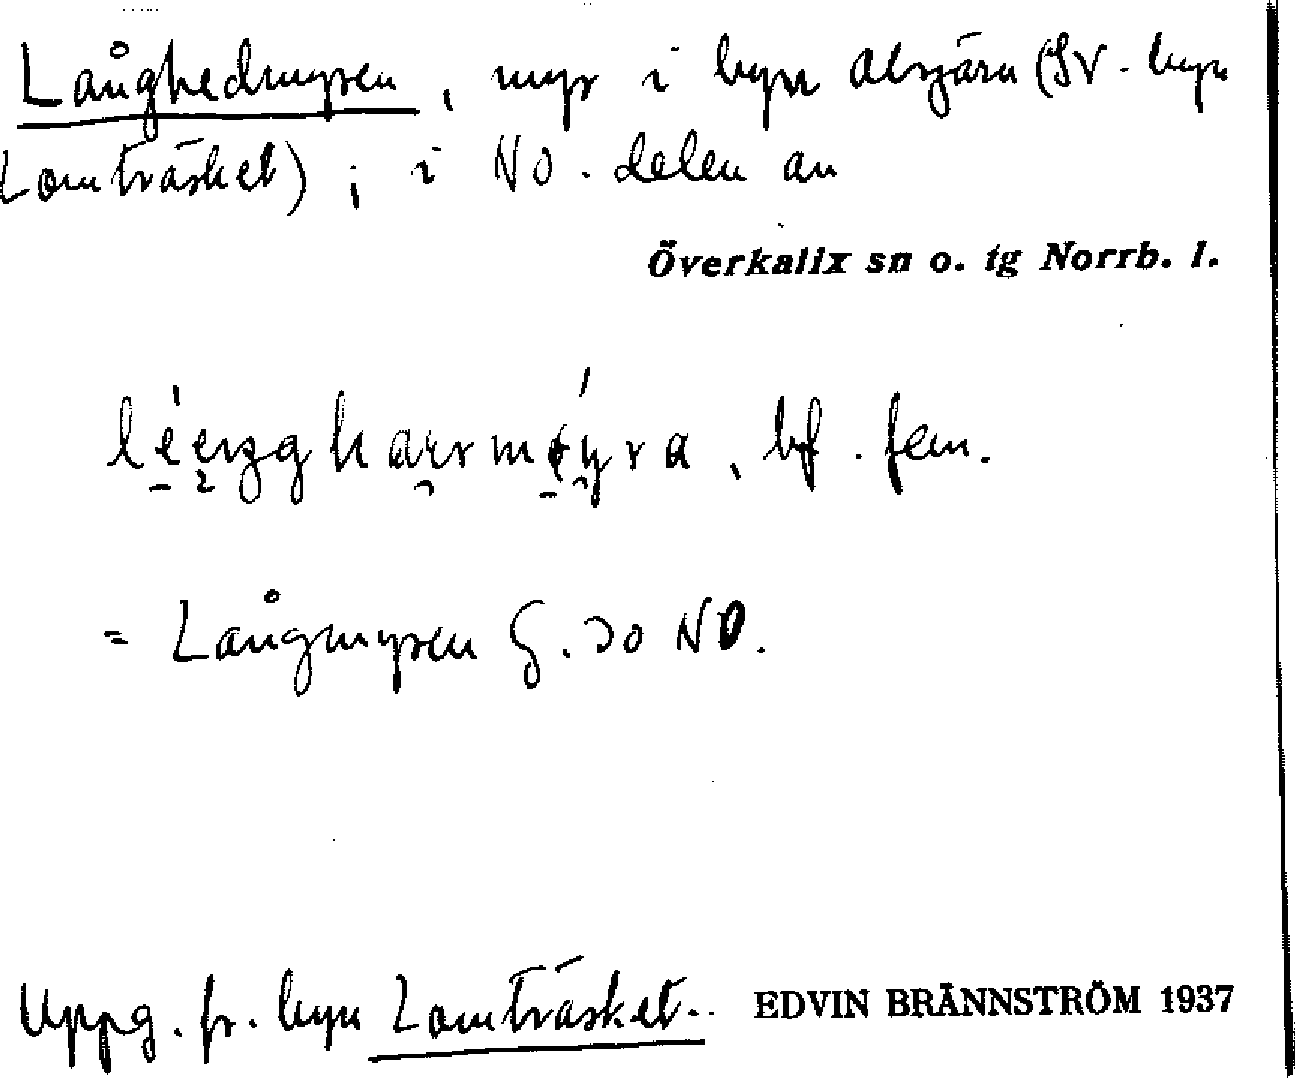 Långhedmyren, myr i byn Alsjärv (SV. byn
Lomträsket); i NO. delen av
Överkalix sn o. tg Norrb. l.
bf. fem.
= Långmyren G. 30 NO.
Uppg. fr. byn Lomträsket. EDVIN BRÄNNSTRÖM 1937